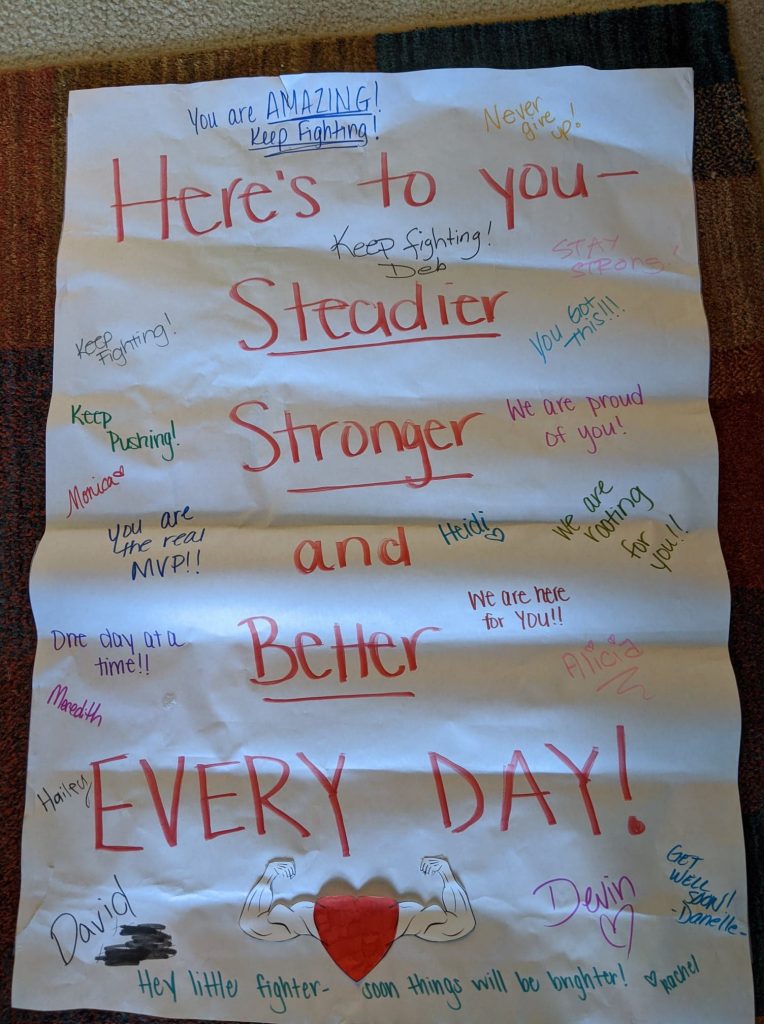 You are AMAZING!
Keep Fighting!
Never
give
up!
Here's to you-
Keep fighting!
Deb
STAY
STRONG!
Steadier
Keep
Fighting!
You Got
This!!!
Keep
Pushing!
Stronger
We are proud
of you!
Monica
You are
the real
MVP!!
and
Heidi
We are
rooting
for
you!!
We are here
for you!!
One day at a
time!!
Better
Alicia
Meredith
Hailey
EVERY DAY!
David
Devin
GET
WELL
SOON!
-Danelle-
Hey little fighter- soon things will be brighter! Rachel